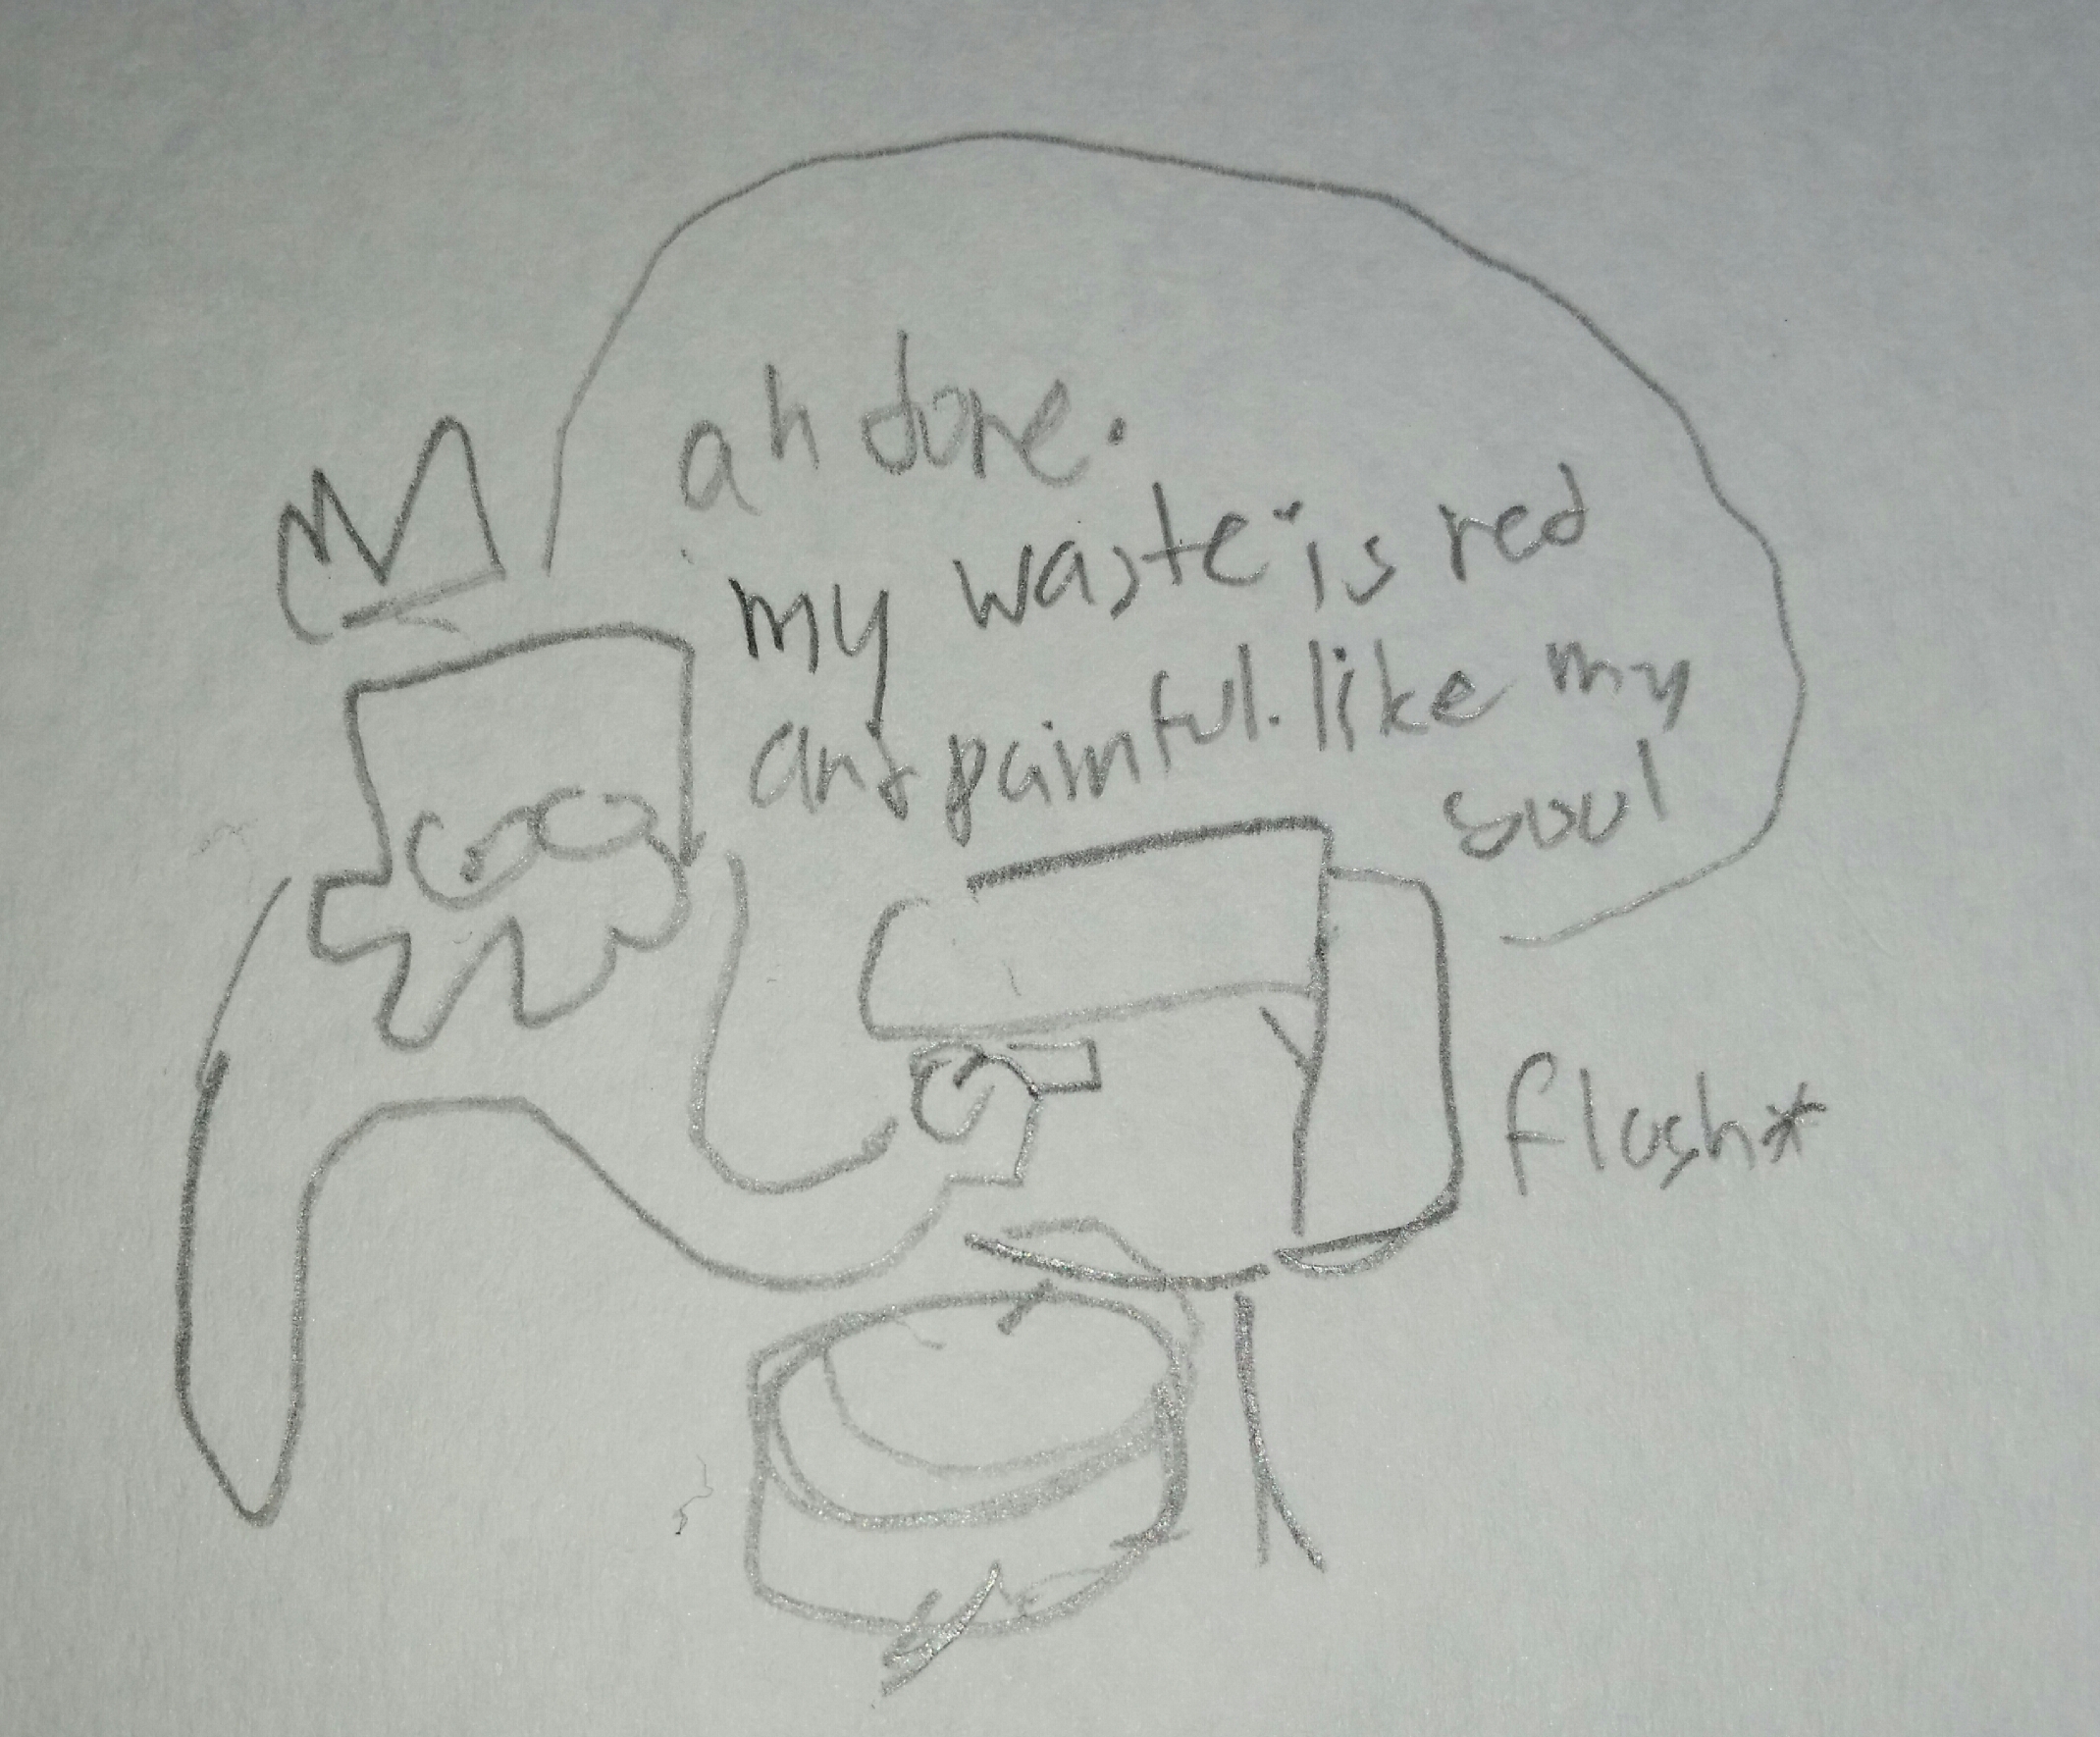 ah done.
my waste is red
and painful. like my
soul
flush*